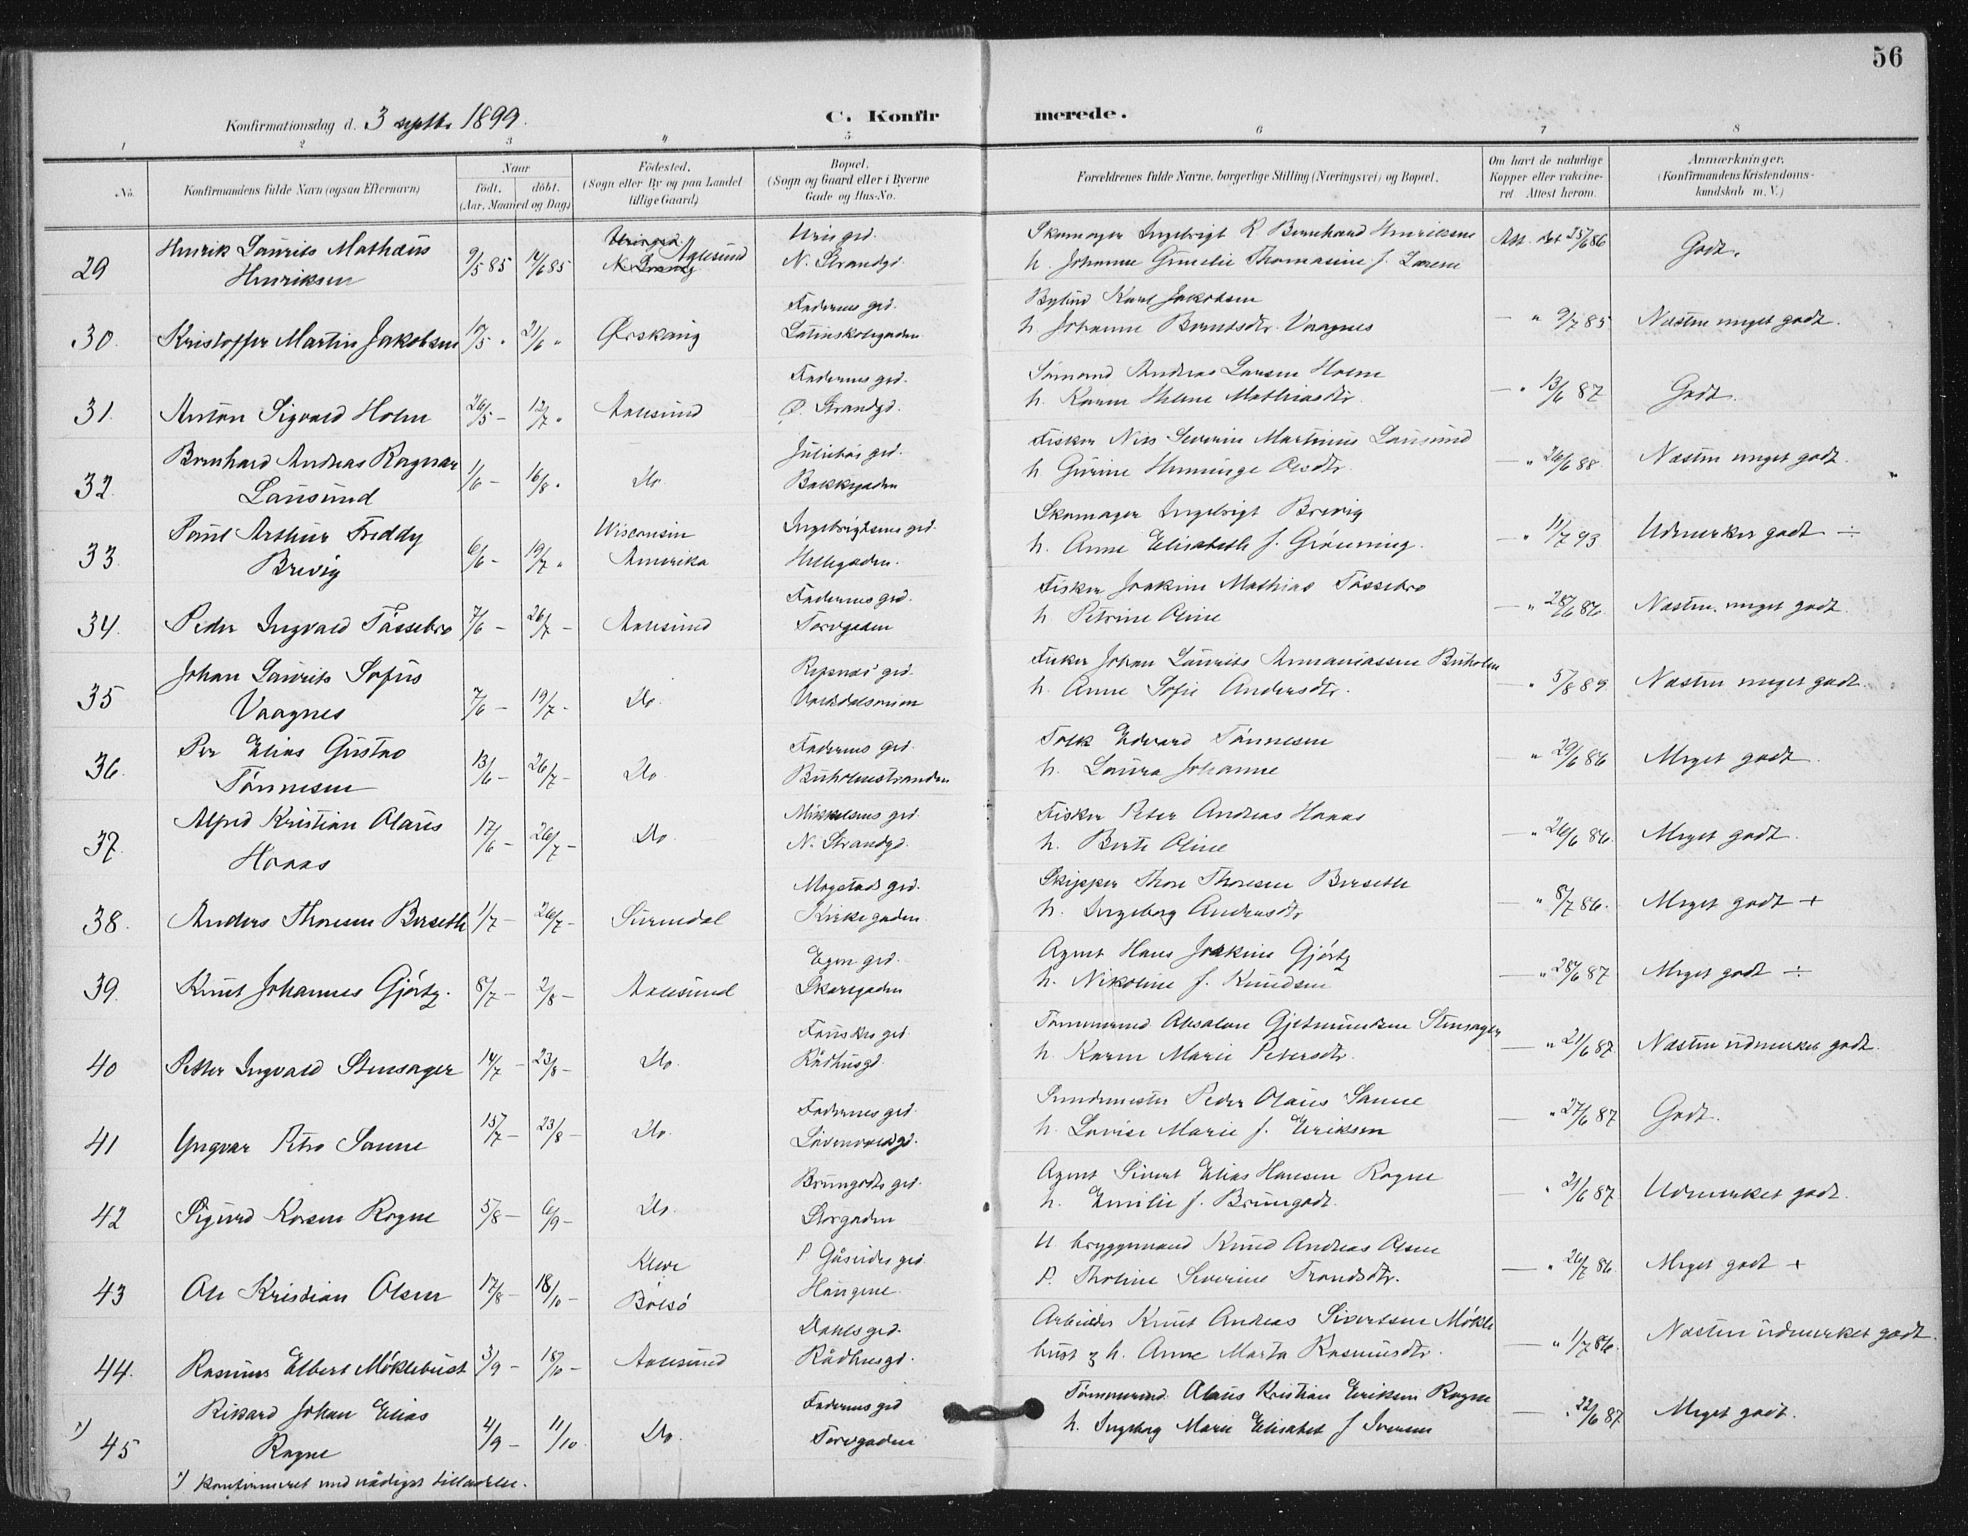 56
Konfirmationsdag d. 3 septb. 1899. C. Konfir merede.
1 2 3 4 5 6 7 8
No. Konfirmandens fulde Navn (ogsaa Efternavn) Naar födt. döbt. (Aar, Maaned og Dag) Födested. (Sogn eller By og paa Landet tillige Gaard) Bopæl. (Sogn og Gaard eller i Byerne Gade og Hus-No. Forældrenes fulde Navne, borgerlige Stilling (Næringsvei) og Bopæl. Om havt de naturlige Kopper eller vakcineret Attest herom. Anmærkninger. (Konfirmandens Kristendomskundskab m. V.)
Henrik Laurits Mathæus Uris grd. Skomager Ingebrigt R Bernhard Henriksen
29 Henriksen 9/5 85 14/6 85 Aalesund N. Strandgd. h. Johanne Thomasine f. Larsen Godt.
Faderens grd. Karl Jakobsen
30. Kristoffer Martin Jakobsen 17/5 " 21/6 " Ørskoug Latinskolegaden h. Johanne Berntsdtr. Vaagnes — " 9/7 85 Næsten meget godt.
Faderens grd. Sømand Andreas Larsen Holm
31. Anton Sigvald Holm 26/5 — 12/7 " Aalesund Ø. Strandgd. h. Karen Helene Mathiasdtr. — " 13/6 87 Godt.
Bernhard Andreas Ragnar grd. Fisker Nils Severin Martinus Lausund
32. Lausund 1/6 — 16/8 " Do. Bakkegaden h. Gurine Henninge Olsdtr. — " 26/6 88 Næsten meget godt.
Paul Arthur Freddy Wisconsin Ingebrigtsens grd. Skomager Ingebrigt Brevig
33. Brevig 6/6 — 19/7 " Amerika Hellegaden. h. Anne Elisabeth f. Grønning. — " 11/7 93 Udmerket godt ÷
Faderens grd. Fisker Joakim Mathias Tøssebro
34. Peder Ingvald Tøssebro 7/6 — 26/7 — Aalesund Torvgaden h. Petrine Oline — " 28/6 86. Næsten meget godt
Johan Laurits Sofus Repsnæs' grd. Fisker Johan Laurits Annaniassen Buholm
35 Vaagnes 7/6 — 19/7 — Do. Volsdalsveien h. Anne Sofie Andersdtr. — " 5/8 89 Næsten meget godt.
Per Elias Gustav Faderens grd. Tolk Edvard Tønnesen
36. Tønnesen 13/6 — 26/7 — Do. Buholmstranden h. Laura Johanne — " 29/6 86 Meget godt.
Alfred Kristian Olaus Mikkelsens grd. Fisker Peter Andreas Haaas
37. Haaas 17/6 — 26/7 — Do N. Strandgd. h. Berte Oline — " 26/6 86. Meget godt.
Mogstads grd. Skipper Thore Thoresen Berseth
38. Anders Thoresen Berseth 1/7 — 26/7 — Surendal Kirkegaden. h. Ingeborg Andersdtr — " 8/7 86. Meget godt +
Egen grd. Agent Hans Joakim Gjørtz
39. Knut Johannes Gjørtz. 8/7 — 2/8 — Aalesund Skaregaden h. Nikoline f. Knudsen — " 28/6 87 Meget godt ÷
Fauskes grd. Tømmermd. Absalon Gjetmundsen Stensager
40 Petter Ingvald Stensager 14/7 — 23/8 — Do. Rådhusgd h. Karen Marie Petersdtr. — " 21/6 87 Næsten udmerket godt.
Faderens grd. Peder Olaus Sanne
41 Yngvar Petro Sanne 15/7 — 23/8 — Do. Løvenvoldgd. h. Lovise Marie f. Eriksen — " 27/6 87 Godt.
Brungodts grd. Agent Sivert Elias Hansen Rogne
42 Sigurd Korsen Rogne 5/8 — 6/9 — Do. Storgaden h. Emilie f. Brungodt. — " 21/6 87 Udmerket godt.
Kleve P Gåseides grd. U bryggemand Knud Andreas Olsen
43 Ole Kristian Olsen 17/8 — 18/10 — Bolsø Haugene. P. Tholine Severine Trondsdtr. — " 26/7 86. Meget godt +
Dahls grd. Arbeider Knut Andreas Sivertsen Møkle
44. Rasmus Elbert Møklebust 3/9 — 18/10 — Aalesund Rådhusgd. bust & h. Anne Marta Rasmusdtr. — " 1/7 86. Næsten udmerket godt.
Rikard Johan Elias Faderens grd Tømmermd. Olaus Kristian Eriksen Rogne
1) 45 Rogne 4/9 — 11/10 Do. Torvgaden h. Ingeborg Marie Elisabet f Iversen — " 22/6 87 Meget godt.
1) konfirmeret med nådigst tilladelse.